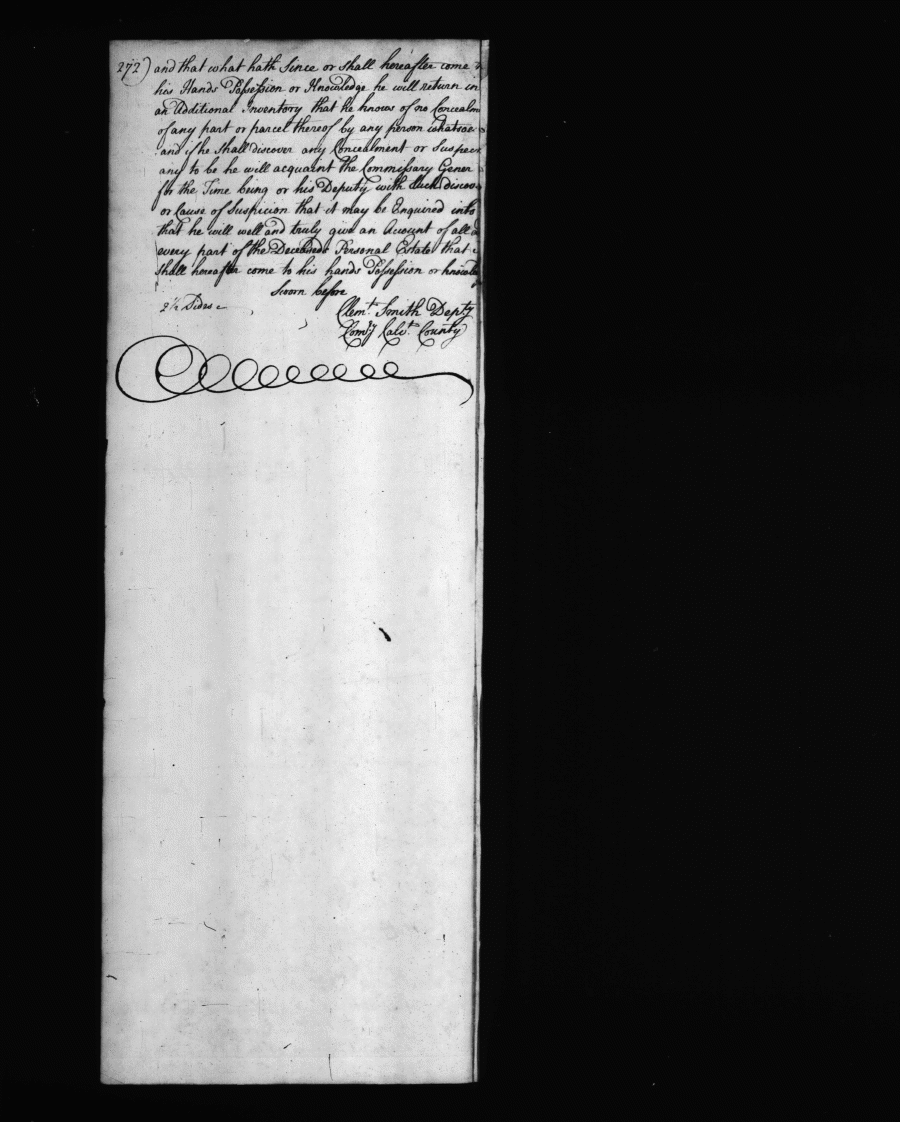 272) and that what hath Since or shall hereafter come
his Hands Possession or Knowledge he will return in
an Additional Inventory that he knows of no Concealm
of any part or parcel thereof by any person whatsoe
and if he shall discover any Concealment or Suspec
any to be he will acquaint the Commissary Gener
for the Time being or his Deputy with such discov
or Cause of Suspicion that it may be Enquired into
that he will well and truly give an Account of all
every part of the Deceaseds Personal Estate that
shall hereafter come to his hands Possession or knowle
Sworn before
2½ Sides
Clemt. Smith Depty
Comry Calvt. County